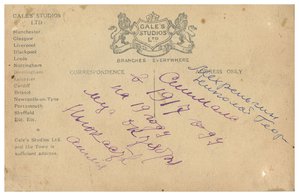 GALE'S STUDIOS
LTD
Manchester
Glasgow
Liverpool
Blackburn
Leeds
Nottingham
Birmingham
Leicester
Cardiff
Bristol
Newcastle-on-Tyne
Portsmouth
Sheffield
Etc. Etc.
Gale's Studios Ltd.
and the Town is
sufficient address.
GALE'S
STUDIOS
LTD
BRANCHES EVERYWHERE
CORRESPONDENCE
ADDRESS ONLY
Николай
в 1917 году
на 19 году